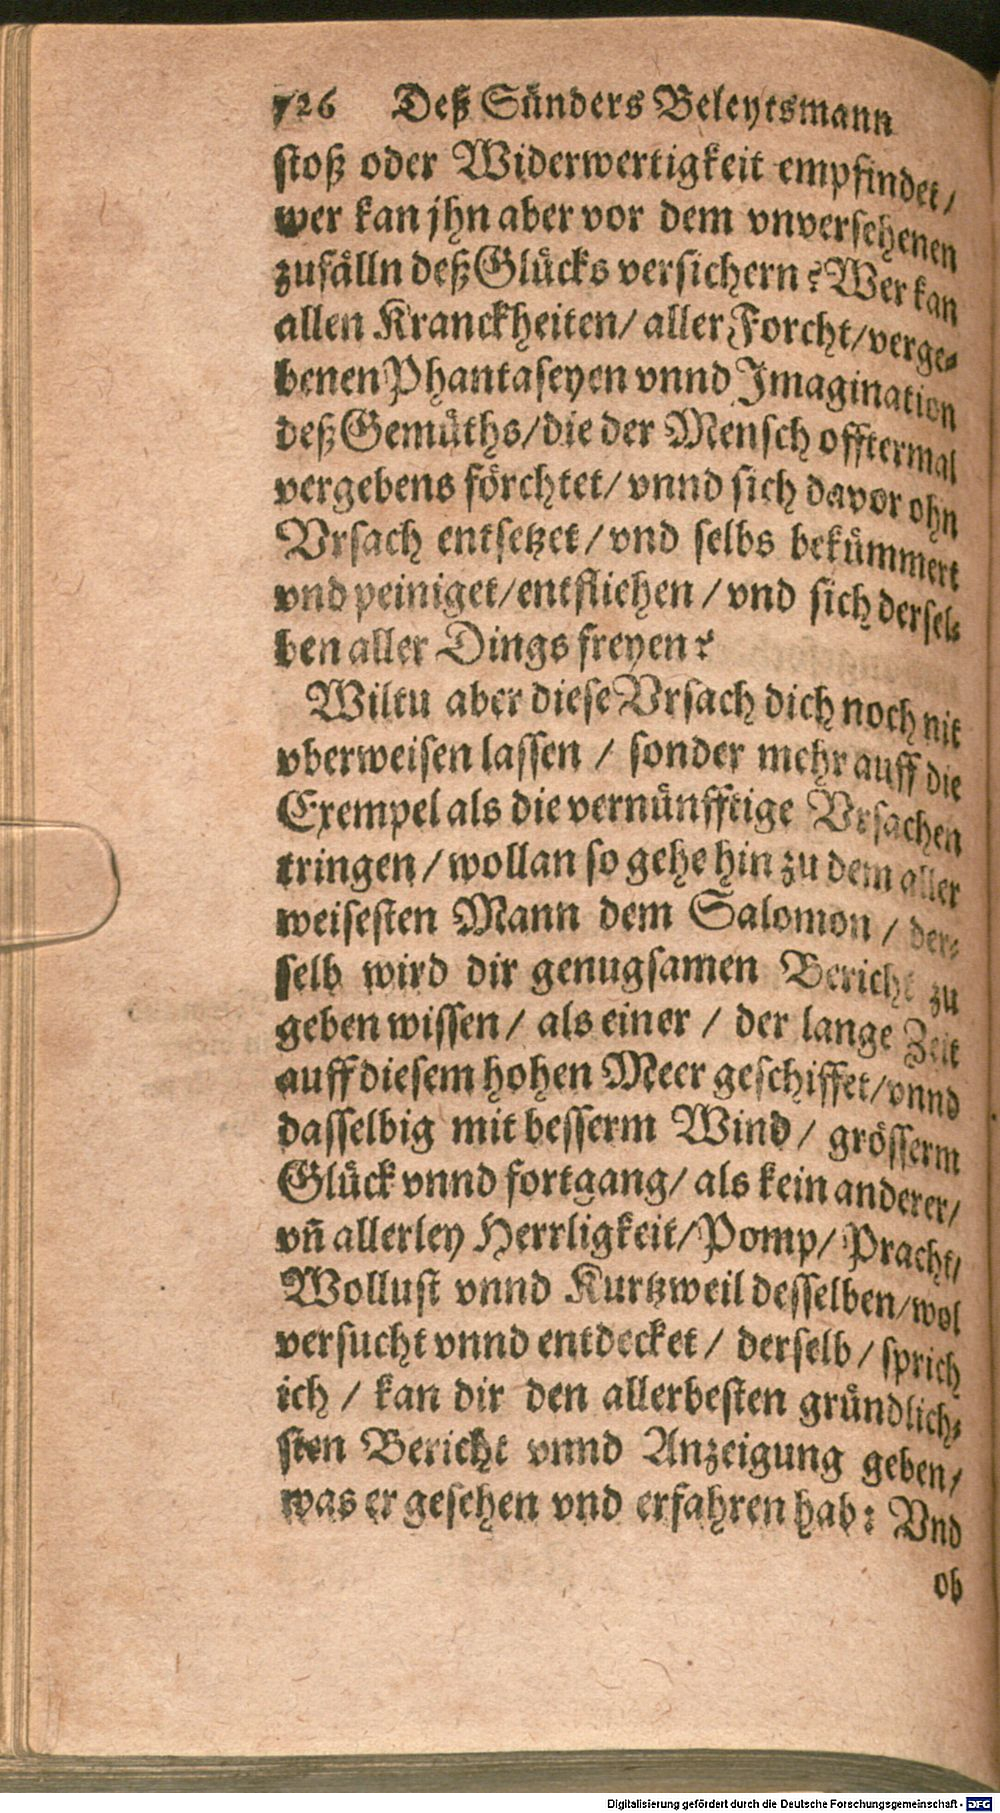 726 Deß Sünders Beleytsmann
stoß oder Widerwertigkeit empfindet/
wer kan jhn aber vor dem vnversehenen
zufälln deß Glücks versichern? Wer kan
allen Kranckheiten/ aller Forcht/ verge-
benen Phantaseyen vnnd Imagination
deß Gemüths/ die der Mensch offtermal
vergebens förchtet/ vnnd sich davor ohn
Vrsach entsetzet/ vnd selbs bekümmert
vnd peiniget/ entfliehen/ vnd sich dersel-
ben aller Dings freyen?
Wiltu aber diese Vrsach dich noch nit
vberweisen lassen/ sonder mehr auff die
Exempel als die vernünfftige Vrsachen
tringen/ wollan so gehe hin zu dem aller
weisesten Mann dem Salomon/ der-
selb wird dir genugsamen Bericht zu
geben wissen/ als einer/ der lange Zeit
auff diesem hohen Meer geschiffet/ vnnd
dasselbig mit besserm Wind/ grösserm
Glück vnnd fortgang/ als kein anderer/
vñ allerley Herrligkeit/ Pomp/ Pracht/
Wollust vnnd Kurtzweil desselben/ wol
versucht vnnd entdecket/ derselb/ sprich
ich/ kan dir den allerbesten gründlich-
sten Bericht vnnd Anzeigung geben/
was er gesehen vnd erfahren hab: Vnd
ob
Digitalisierung gefördert durch die Deutsche Forschungsgemeinschaft - DFG